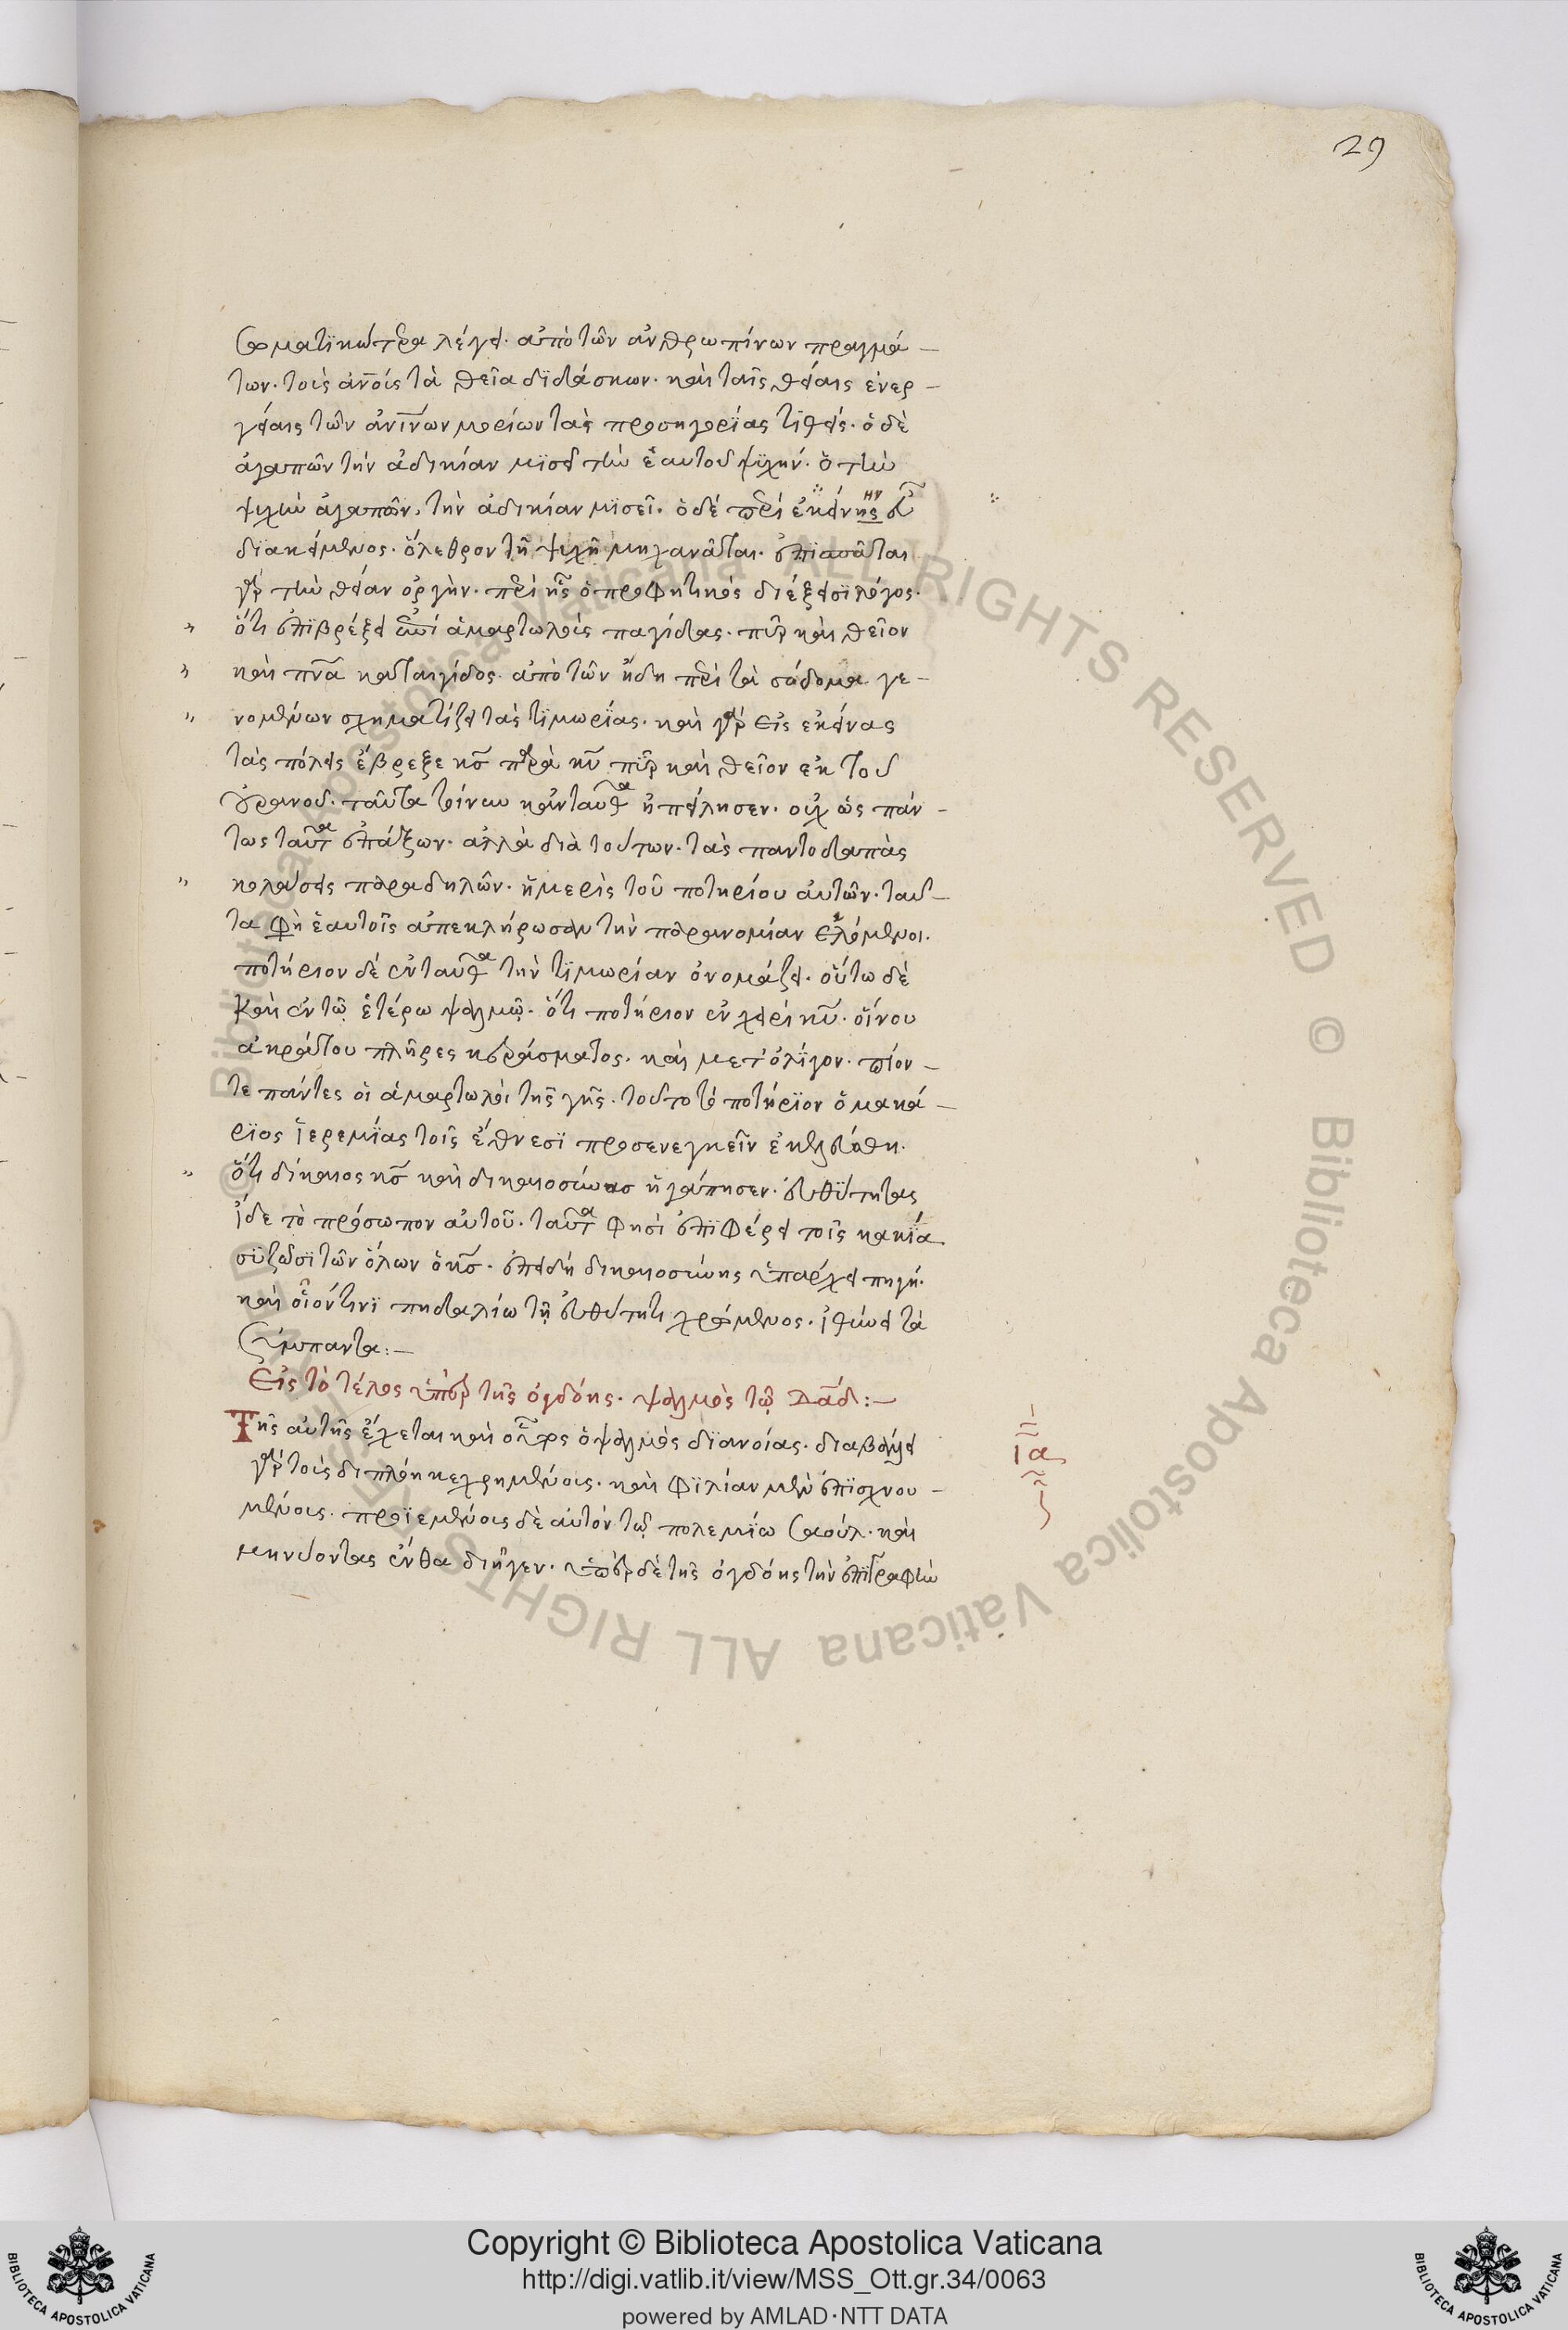 29
σωματικώτερα λέγει. ἀπὸ τῶν ἀνθρωπίνων πραγμά –
των. τοῖς ἀν̅οις τὰ θεῖα διδάσκων. καὶ ταῖς θείαις ἐνερ –
γείαις τῶν ἀν̅ίνων μορίων τὰς προσηγορίας τιθείς. ὁ δὲ
ἀγαπῶν τὴν ἀδικίαν μισεῖ τὴν ἑαυτοῦ ψυχήν. ὁ τὴν
ψυχὴν ἀγαπῶν, τὴν ἀδικίαν μισεῖ. ὁ δὲ περὶ ἐκείνης ην εὖ
διακείμενος. ὄλεθρον τῇ ψυχῇ μηχανᾶται. ἐπισπᾶται
γὰρ τὴν θείαν ὀργήν. περὶ ἧς ὁ προφητικὸς διέξεισι λόγος.
" ὅτι ἐπιβρέξει ἐπὶ ἁμαρτωλοὺς παγίδας. πῦρ καὶ θεῖον
" καὶ πν̅α καταιγίδος. ἀπὸ τῶν ἤδη περὶ τὰ σόδομα γε –
" νομένων σχηματίζει τὰς τιμωρίας. καὶ γὰρ εἰς ἐκείνας
τὰς πόλεις ἔβρεξε κς̅ παρὰ κυ̅ πῦρ καὶ θεῖον ἐκ τοῦ
οὐρανοῦ. ταῦτα τοίνυν κἀνταῦθα ἠπείλησεν. οὐχ ὡς πάν –
τως ταῦτα ἐπάξων. ἀλλὰ διὰ τούτων. τὰς παντοδαπὰς
" κολάσεις παραδηλῶν. ἡ μερὶς τοῦ ποτηρίου αὐτῶν. ταῦ –
τα φη ἑαυτοῖς ἀπεκλήρωσαν τὴν παρανομίαν ἑλόμενοι.
ποτήριον δὲ ἐνταῦθα τὴν τιμωρίαν ὀνομάζει. οὕτω δὲ
καὶ ἐν τῷ ἑτέρω ψαλμῷ. ὅτι ποτήριον ἐν χειρὶ κυ̅. οἴνου
ἀκράτου πλῆρες κεράσματος. καὶ μετ' ὀλίγον. πίον –
τε πάντες οἱ ἁμαρτωλοὶ τῆς γῆς. τοῦτο τὸ ποτήριον ὁ μακά –
ριος ἱερεμίας τοῖς ἔθνεσι προσενεγκεῖν ἐκελεύσθη.
" ὅτι δίκαιος κς̅ καὶ δικαιοσύνας ἠγάπησεν. εὐθύτητας
ἶδε τὸ πρόσωπον αὐτοῦ. ταῦτα φησὶ ἐπιφέρει τοῖς κακία
συζῶσι τῶν ὅλων ὁ κς̅. ἐπειδὴ δικαιοσύνης ὑπάρχει πηγή.
καὶ οἱόν τινι πηδαλίω τῇ εὐθύτητι χρώμενος. ἰθύνει τὰ
σύμπαντα:–
Εἰς τὸ τέλος ὑπὲρ τῆς ὀγδόης. ψαλμὸς τῷ Δα̅δ:–
Τῆς αὐτῆς ἔχεται καὶ οὗτος ὁ ψαλμὸς διανοίας. διαβάλλει
ια
γὰρ τοὺς διπλόη κεχρημένους. καὶ φιλίαν μὲν ὑπισχνου –
μένους. προϊεμένους δὲ αὐτὸν τῷ πολεμίω σαούλ. καὶ
μηνύοντας ἔνθα διῆγεν. ὑπὲρ δὲ τῆς ὀγδόης τὴν ἐπιγραφὴν
Copyright © Biblioteca Apostolica Vaticana
http://digi.vatlib.it/view/MSS_Ott.gr.34/0063
powered by AMLAD·NTT DATA